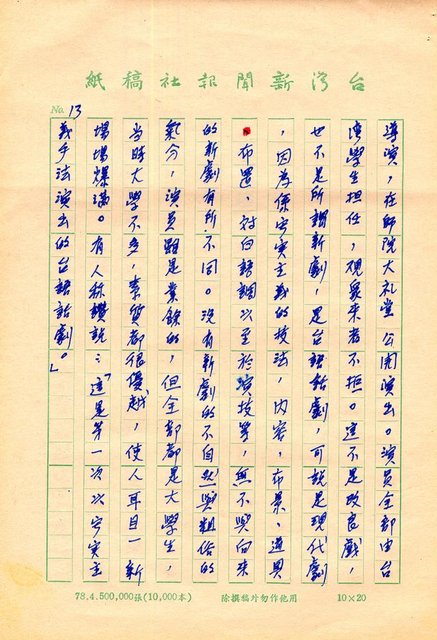 台灣新聞報社稿紙
No. 13
導演，在師院大礼堂公開演出。演員全部由台
湾學生担任，視眾來者不拒。這不是改良戲，
也不是所謂新劇，是台語話劇，可說是現代劇
，因為係寫实主義的技法，内容，布景，道具
，布置，对白語調以至於演技等，無不與向來
的新劇有所不同。沒有新劇的不自然與粗俗的
氣分，演員雖是業餘的，但全部都是大學生，
當時大學不多，素質都很優越，使人耳目一新
場場爆滿。有人称讚說：「這是第一次以写实主
義手法演出的台語話劇。」
78.4.500,000張(10,000本)
除撰稿外勿作他用
10×20